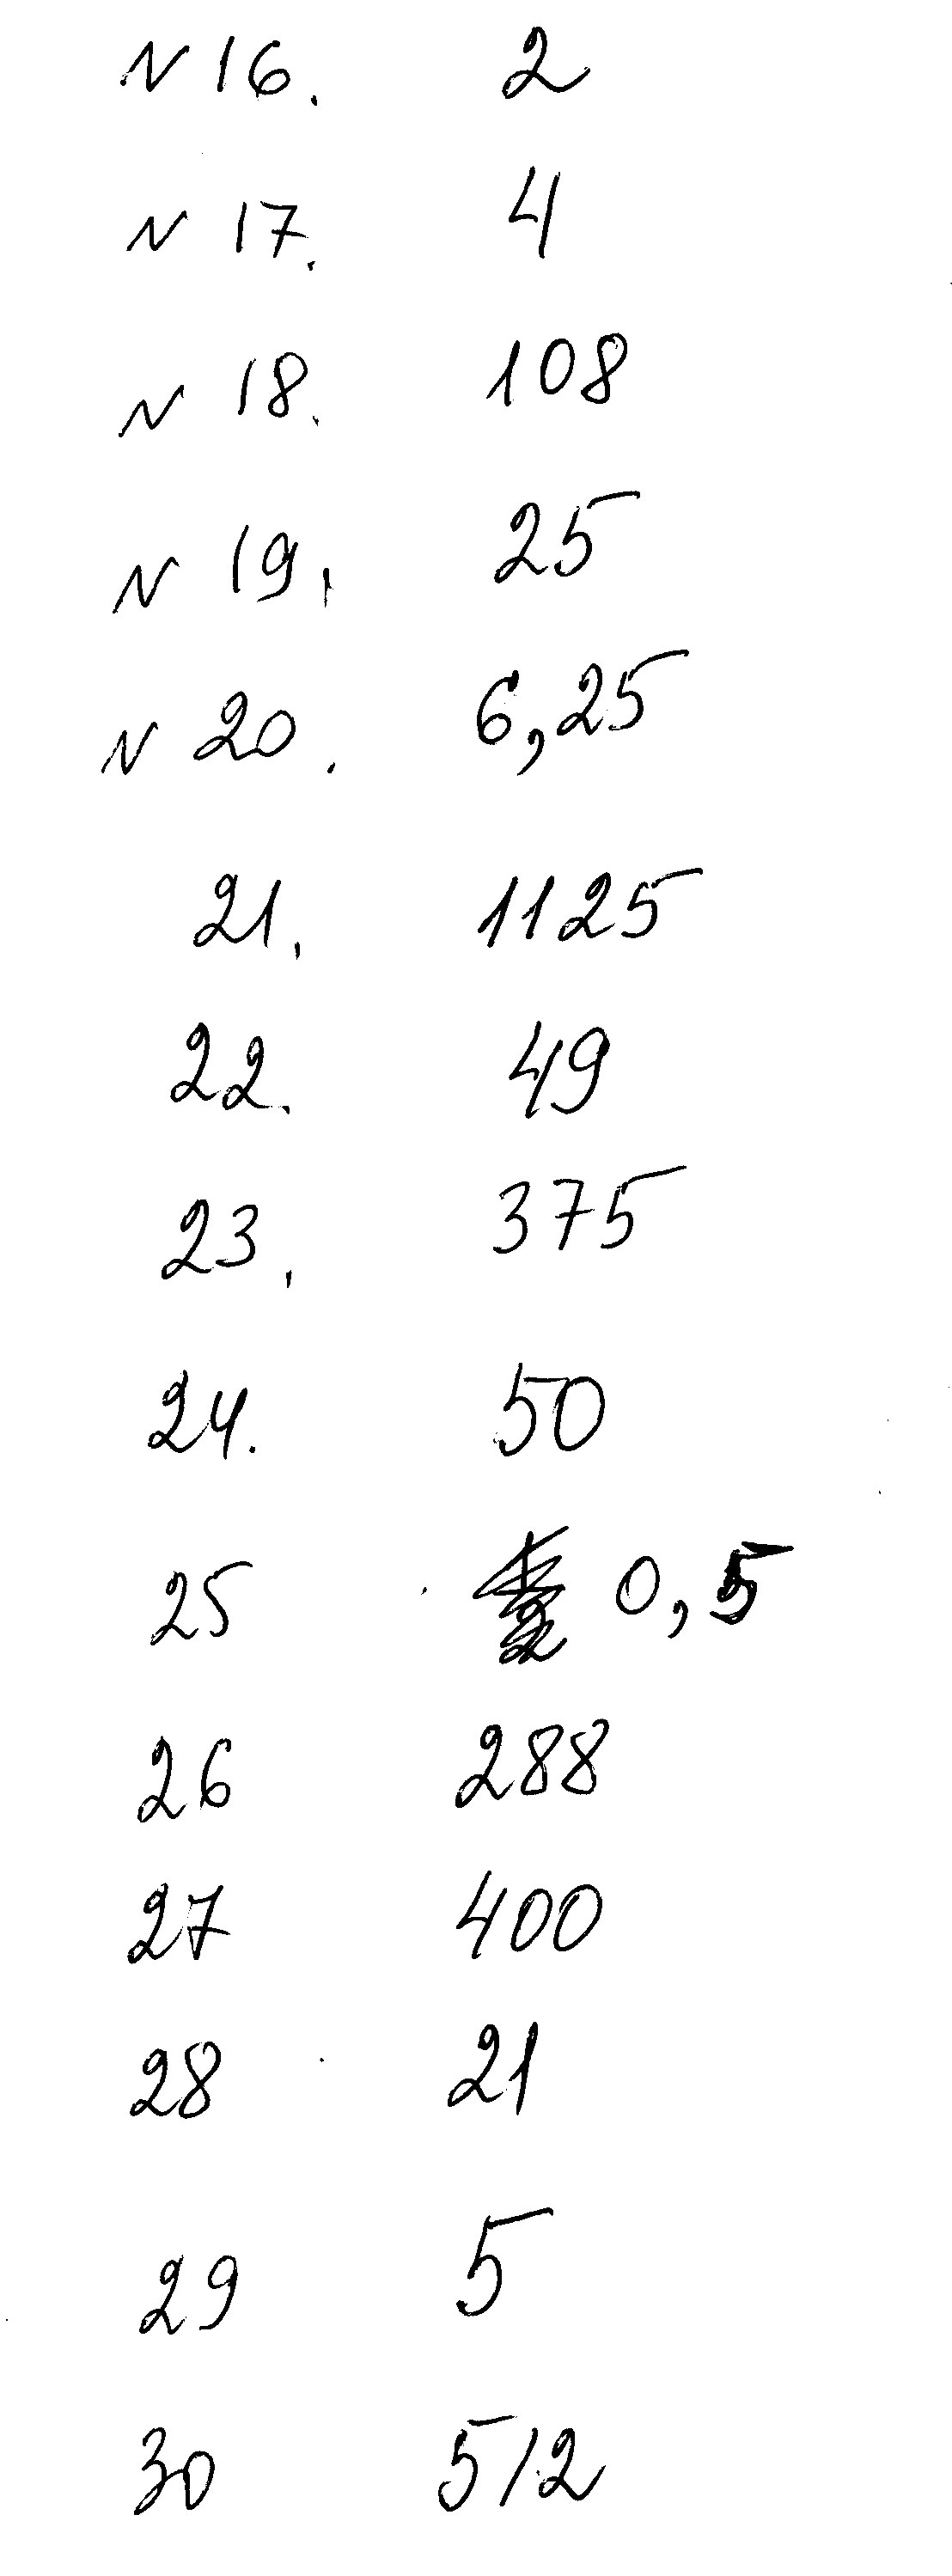 N 16. 2
N 17. 4
N 18. 108
N 19. 25
N 20. 6,25
21. 1125
22. 49
23. 375
24. 50
25 0,5
26 288
27 400
28 21
29 5
30 512